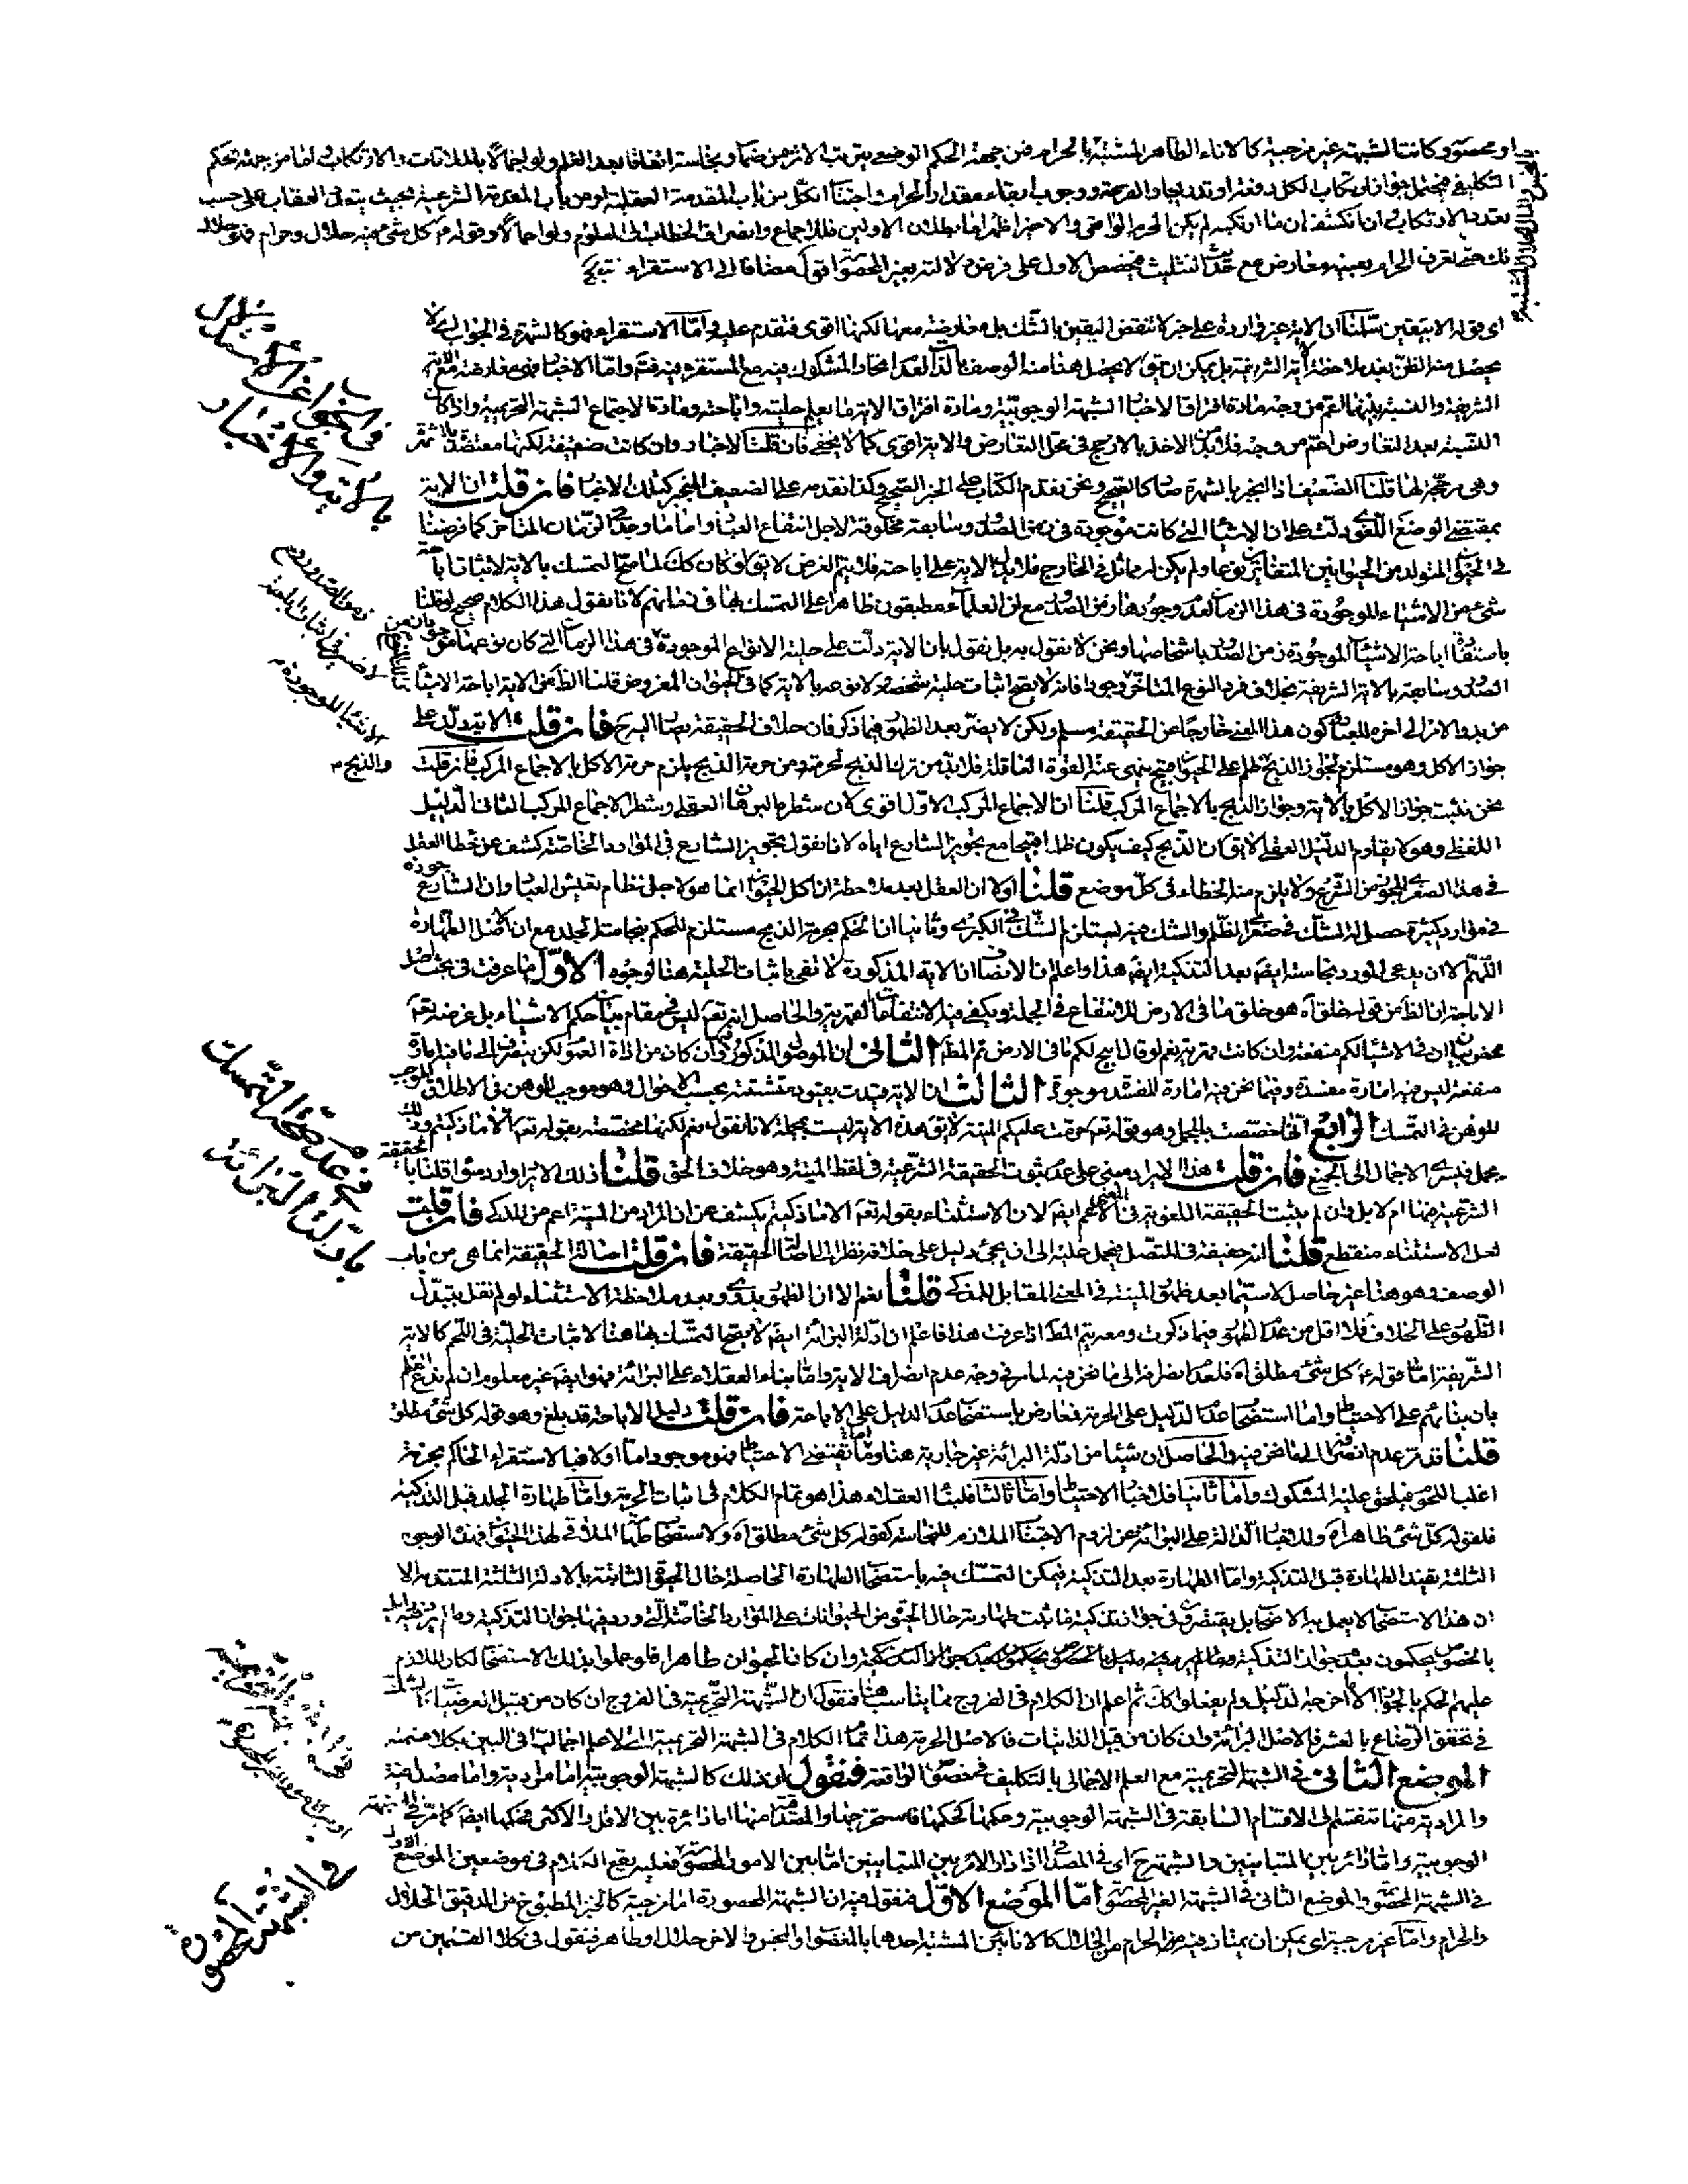 او محصور كانت الشبهة غير مزجية كالاناء الطاهر المشتبه بالحرام فمن جهة الحكم الوضعي يترتب الاثر من ضمان ونجاسة اتفاقا بعد العلم ولو اجمالا بالملاقات والارتكاب اما من جهة الحكم
التكليفي فيحتمل جواز ارتكاب الكل دفعة او تدريجا والقرعة ووجوب ابقاء مقدار الحرام واجتناب الكل من باب المقدمة العقلية او من باب المقدمة الشرعية بحيث يتعدد العقاب على حسب
تعدد الارتكاب ان انكشف ان ما ارتكبه لم يكن الحرام الواقعي والاخير اظهر اما بطلان الاولين فللاجماع وانصراف الخطاب الى المعلوم ولو اجمالا وقوله كل شيء فيه حلال وحرام فهو حلال
لك حتى تعرف الحرام بعينه معارض مع حديث التثليث مخصص الاول على فرض دلالته بغير المحصور اقول مضافا الى الاستقراء
اي قوله الا بيقين سلمنا ان الاية غير واردة على خبر لا تنقض اليقين بالشك بل معارضة معها لكنها اقوى فتقدم عليه واما الاستقراء فهو كالشهرة في الجواب اي لا
يحصل منه الظن بعد ملاحظة اية الشريفة بل يمكن ان يقال لا يحصل هنا منه الوصف بالذات لعدم اتحاد المشكوك فيه مع المستقرء فيه فتم واما الاخبار فهي معارضة مع الاية
الشريفة والنسبة بينهما اعم من وجه مادة افتراق الاخبار الشبهة الوجوبية ومادة افتراق الاية ما يعلم حليته واباحته ومادة الاجتماع الشبهة التحريمية واذا كان
النسبة بعد التعارض اعم من وجه فلابد الاخذ بالارجح في محل التعارض والاية اقوى كما لا يخفى فان قلت الاخبار وان كانت ضعيفة لكنها معتضدة بالشهرة
وهي مرجحة لها قلنا الضعيف اذا انجبر بالشهرة صار كالصحيح ونحن نقدم الكتاب على الخبر الصحيح وكذا نقدمه على الضعيف المنجر كتلك الاخبار فان قلت ان الاية
بمقتضى الوضع اللغوي دلت على ان الاشياء التي كانت موجودة في زمن الصدور وسابقه مخلوقة لاجل انتفاع العباد واما ما وجد في الزمان المتاخر كما فرضنا
في الحيوان المتولد من الحيوانين المتغايرين نوعا ولم يكن له مماثل في الخارج فلا تدل الاية على اباحته فلا يتم الغرض لا يقال لو كان كك لما صح التمسك بالاية لاثبات اباحة
شيء من الاشياء الموجودة في هذا الزمان لعدم وجودها زمن الصدور مع ان العلماء مطبقون ظاهرا على التمسك بها في زمانهم لانا نقول هذا الكلام صحيح لو قلنا
باستفادة اباحة الاشياء الموجودة زمن الصدور باشخاصها ونحن لا نقول به بل نقول بان الاية دلت على حلية الانواع الموجودة في هذا الزمان التي كان نوعها موجودا من
الصدور وسابقه بالاية الشريفة بخلاف فرد النوع المتاخر وجودا فانه لا يصح اثبات حلية شخصه ولا نوعه بالاية كما في الحيوان المفروض قلنا الظاهر من الاية اباحة الاشياء
من بدو الامر الى اخره للعباد كون هذا المعنى خارجا عن الحقيقة مسلم ولكن لا يضر بعد الظهور فيما ذكر فان خلاف الحقيقة يصار اليه ح فان قلت الاية تدل على
جواز الاكل وهو مستلزم لجواز الذبح والذبح ظلم على الحيوان قبيح ينهى عنه القوة العاقلة فلابد من ترك الذبح لحرمته ومن حرمة الذبح يلزم حرمة الاكل بالاجماع المركب فان قلت
نحن نثبت جواز الاكل بالاية وجواز الذبح بالاجماع المركب قلنا ان الاجماع المركب الاول اقوى لان شطره البرهان العقلي وشطر الاجماع المركب الثاني الدليل
اللفظي وهو لا يقاوم الدليل العقلي لا يقال ان الذبح كيف يكون ظلما قبيحا مع تجويز الشارع اياه لانا نقول تجويز الشارع في الموارد الخاصة كشف عن خطا العقل
في هذا الصغرى المجوز من الشرع ولا يلزم منه الخطاء في كل موضع قلنا اولا ان العقل بعد ملاحظة ان اكل الحيوان انما هو لاجل نظام تعيش العباد وان الشارع جوزه
في موارد كثيرة حصل له الشك في صغرى الظلم والشك فيه يستلزم الشك في الكبرى وثانيا ان الحكم بحرمة الذبح مستلزم للحكم بنجاسة الجلد مع ان الاصل الطهارة
اللهم الا ان يدعى المورد نجاسته ايضا بعد التذكية ايضا هذا واعلم ان الانصاف ان الاية المذكورة لا تفي باثبات الحلية هنا لوجوه الاول ما عرفت في بحث اصل
الاباحة ان الظاهر من قوله خلق اه هو خلق ما في الارض للانتفاع في الجملة ويكفي فيه الانتفاعات القهرية والحاصل انه تعالى ليس في مقام بيان حكم الاشياء بل غرضه تعالى
محض بيان ان في الاشياء لكم منفعة وان كانت قهرية نعم لو قال ابيح لكم ما في الارض تم المط الثاني ان الموصول المذكور وان كان من اداة العموم لكن ينصرف الى ما فيه امارة
منفعة ليس فيه امارة مفسدة وفيما نحن فيه امارة المفسدة موجودة الثالث ان الاية قيدت بقيود متشتتة بحسب الاحوال وهو موجب للوهن في الاطلاق الموجب
للوهن في التمسك الرابع انها خصصت بالمجمل وهو قوله تعالى حرمت عليكم الميتة لا يقال هذه الاية ليست مجملة لانا نقول نعم لكنها مخصصة بقوله تعالى الا ما ذكيتم وذلك
مجمل فيسري الاجمال الى الجميع فان قلت هذا الايراد مبني على عدم ثبوت الحقيقة الشرعية في لفظ الميتة وهو خلاف الحق قلنا ذلك الايراد وارد سواء قلنا بالحقيقة
الشرعية هنا ام لا بل وان لم يثبت الحقيقة اللغوية في المعنى الاعم ايضا لان الاستثناء بقوله تعالى الا ما ذكيتم يكشف عن ان المراد من الميتة اعم من المذكى فان قلت
لعل الاستثناء منقطع قلنا انه حقيقة في المتصل فيحمل عليه الى ان يجيء دليل على خلافه نظرا الى اصالة الحقيقة فان قلت اصالة الحقيقة انما هي من باب
الوصف وهو هنا غير حاصل لا سيما بعد ظهور الميتة في المعنى المقابل للمذكى قلنا نعم الا ان الظهور بدوي وبعد ملاحظة الاستثناء لو لم نقل بتبدل
الظهور على الخلاف فلا اقل من عدم الظهور فيما ذكرت ومعه يتم المط اذا عرفت هذا فاعلم ان ادلة البرائة ايضا لا يصح التمسك بها هنا لاثبات الحلية في اللحم كالاية
الشريفة اما قوله ع كل شيء مطلق اه فلعدم انصرافه الى ما نحن فيه لما مر في وجه عدم انصراف الاية واما بناء العقلاء على البرائة فهو ايضا غير معلوم ان لم ندع العلم
بان بنائهم على الاحتياط واما استصحاب عدم الدليل على الحرمة فمعارض باستصحاب عدم الدليل على الاباحة فان قلت دليل الاباحة قد بلغ وهو قوله كل شيء مطلق
قلنا قد مر عدم انصرافه الى ما نحن فيه والحاصل ان شيئا من ادلة البرائة غير جارية هنا واما ما يقتضي الاحتياط فهو موجود اما اولا فبالاستقراء الحاكم بحرمة
اغلب اللحوم فيلحق عليه المشكوك واما ثانيا فلاخبار الاحتياط واما ثالثا فلبناء العقلاء هذا هو تمام الكلام في اثبات الحرمة واما طهارة الجلد قبل التذكية
فلقوله كل شيء طاهر اه وللاخبار الدالة على البرائة عن لزوم الاجتناب الملازم للنجاسة كقوله كل شيء مطلق اه ولاستصحاب طهارة الملاقي لهذا الحيوان فهذه الوجوه
الثلثة يفيد الطهارة قبل التذكية واما الطهارة بعد التذكية فيمكن التمسك فيه باستصحاب الطهارة الحاصلة حال الحيوة الثابتة بالادلة الثلثة المتقدمة الا
ان هذا الاستصحاب لا يعمل به الاصحاب بل يقتصرون في جواز تذكية ما ثبت طهارته حال الحيوة من الحيوانات على الموارد الخاصة التي ورد فيها جواز التذكية وما لم يرد فيه دليل
بالخصوص يحكمون بعدم جواز التذكية وان كان الحيوان طاهرا فلو عملوا بذلك الاستصحاب لكان اللازم
عليهم الحكم بالجواز الا ما اخرجه الدليل ولم يفعلوا كك ثم اعلم ان الكلام في الفروج مما يناسب هنا فنقول ان الشبهة التحريمية في الفروج ان كان من قبيل العرضيات
في تحقق الرضاع بالعشر فالاصل البرائة وان كان من قبيل الذاتيات فالاصل الحرمة هذا تمام الكلام في الشبهة التحريمية اي لا علم اجماليا في البين بكلا قسميه
الموضع الثاني في الشبهة التحريمية مع العلم الاجمالي بالتكليف في خصوص الواقعة فنقول ان ذلك كالشبهة الوجوبية اما مرادية واما مصداقية
والمرادية منها تنقسم الى الاقسام السابقة في الشبهة الوجوبية وحكمها كحكمها والمصداقية منها اما دائرة بين الاقل والاكثر فحكمها ايضا كما مر في الشبهة
الوجوبية واما دائر بين المتباينين والشبهة ح اي في المصداق اذا دار الامر بين المتباينين اما بين الامور المحصور فعليه يقع الكلام في موضعين الموضع الاول
في الشبهة المحصور والموضع الثاني في الشبهة الغير المحصور اما الموضع الاول فنقول فيه ان الشبهة المحصورة اما مزجية كالخبز المطبوخ من الدقيق الحلال
والحرام واما غير مزجية اي يمكن ان يمتاز فيه الحرام من الحلال كالانائين المشتبه احدهما بالمغصوب او النجس والاخر حلال او طاهر فنقول في كلا القسمين من
في الجواب عن الاستدلال
بالاية والاخبار
في عدم صحة التمسك
بادلة البرائة
في الشبهة المحصورة